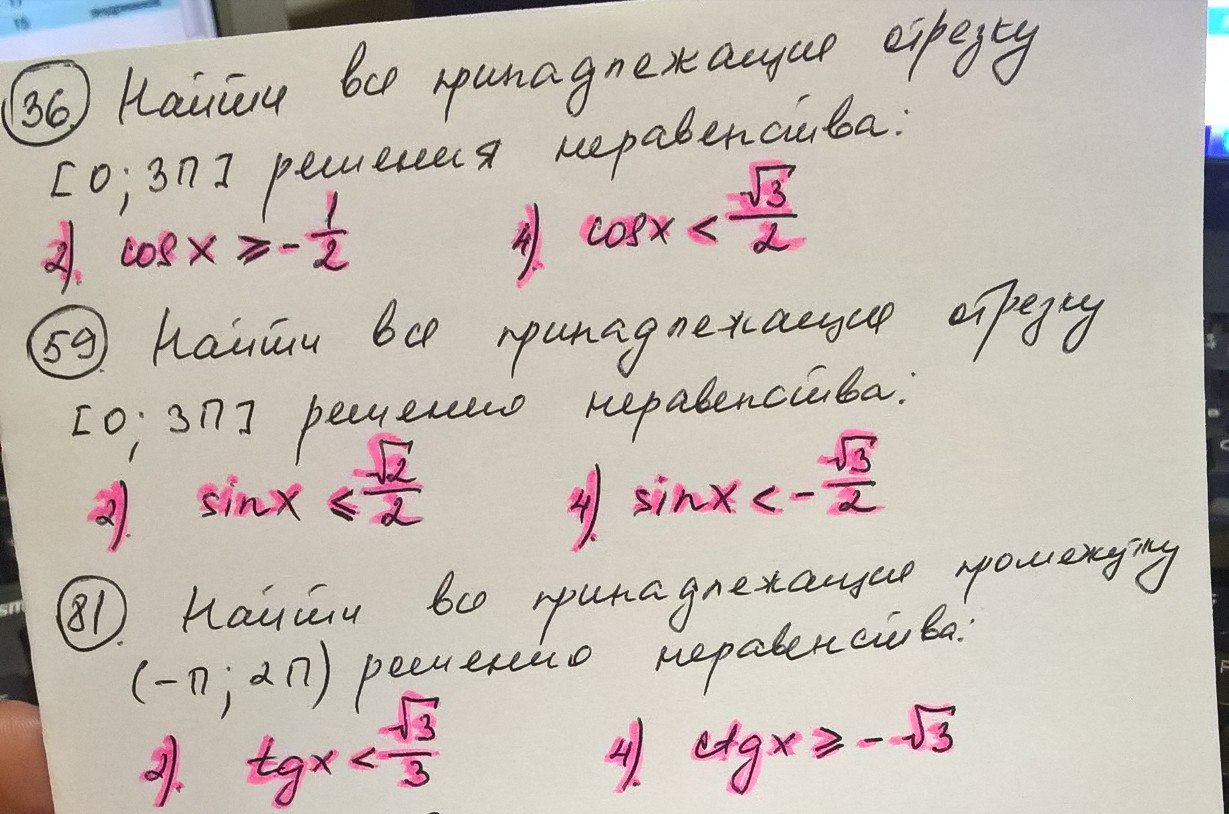 36 Найти все принадлежащие отрезку
[0; 3П] решения неравенства:
2). cos x ≥ -1/2 4). cos x < √3/2
59 Найти все принадлежащие отрезку
[0; 3П] решению неравенства:
2). sin x ≤ √2/2 4). sin x < -√3/2
81. Найти все принадлежащие промежутку
(-П; 2П) решению неравенства:
2). tg x < √3/3 4). ctg x ≥ -√3